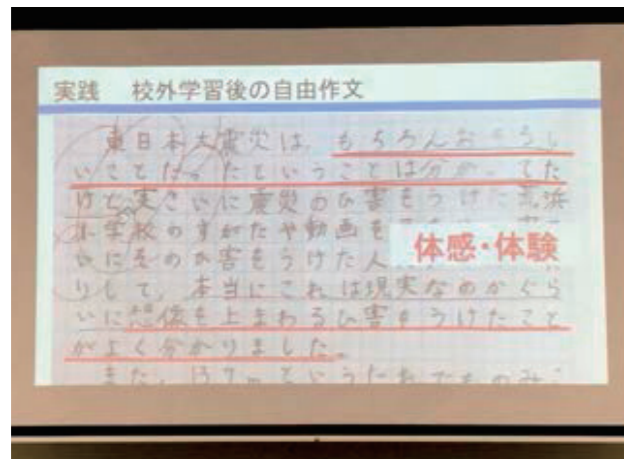 実践 校外学習後の自由作文
東日本大震災は、もちろんおそろし
いことだったということは分かってた
けど実さいに震災のひ害をうけた荒浜
小学校のすがたや動画を
にそのひ害をうけた人
体感・体験
りして、本当にこれは現実なのかぐら
いに想像を上まわるひ害をうけたこと
がよく分かりました。
また、